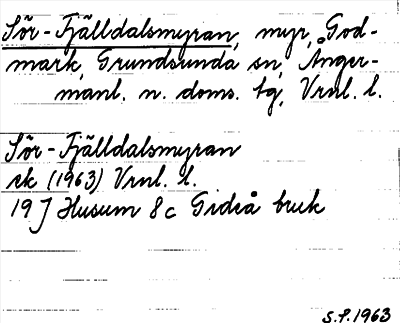 Sör-Fjälldalsmyran, myr, God-
mark, Grundsunda sn, Ånger-
manl. n. doms. tg, Vrnl. l.
Sör-Fjälldalsmyran
ek (1963) Vrnl. l.
19 J Husum 8c Gideå bruk
S.F. 1963